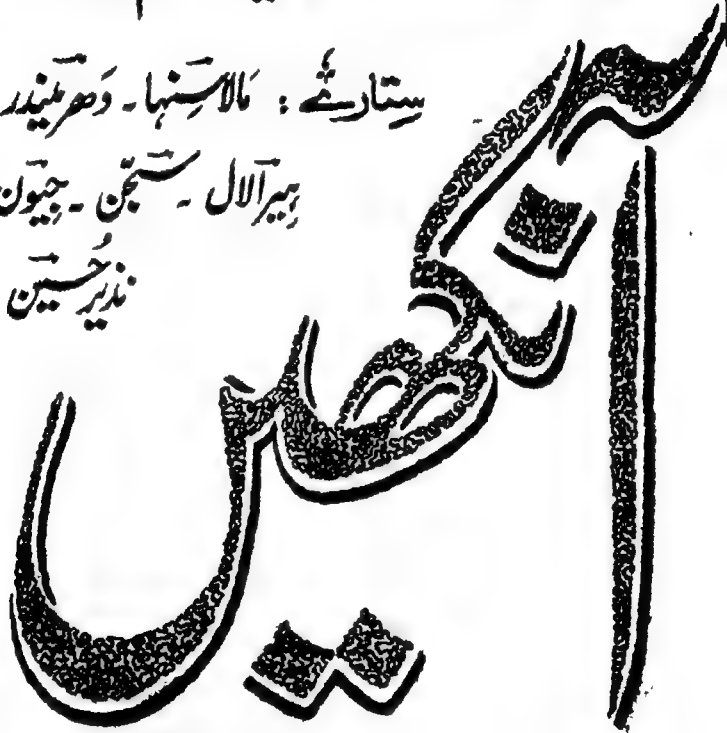 ستارے : مالا سنہا ۔ دھرمیندر
ہیرالال ۔ سجن ۔ جیون
نذیر حسین
آنکھیں